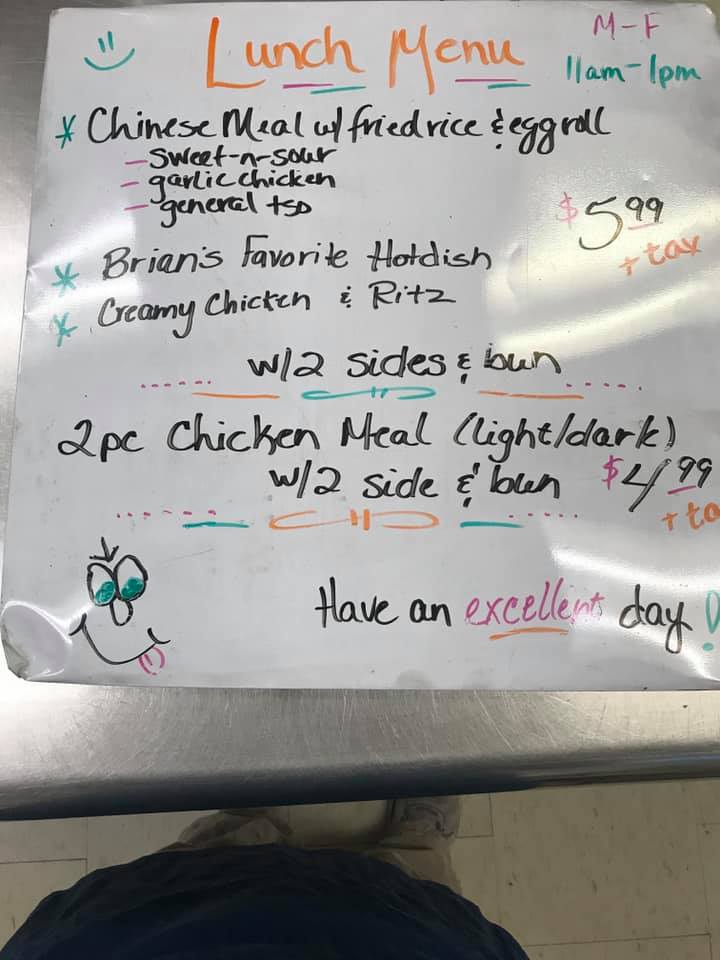 Lunch Menu
M-F
11am-1pm
* Chinese Meal w/ fried rice & eggroll
- sweet-n-sour
- garlic chicken
- general tso
$5.99
+ tax
* Brian's Favorite Hotdish
* Creamy Chicken & Ritz
w/2 sides & bun
2pc Chicken Meal (light/dark)
w/2 side & bun $4.99
+ ta
Have an excellent day!